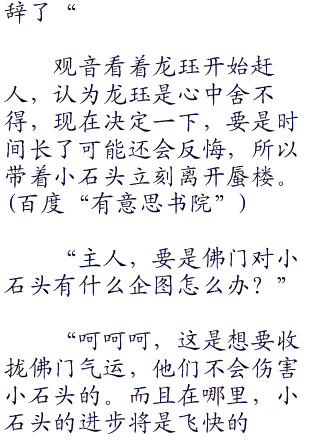 辞了“
观音看着龙珏开始赶
人，认为龙珏是心中舍不
得，现在决定一下，要是时
间长了可能还会反悔，所以
带着小石头立刻离开蜃楼。
(百度“有意思书院”)
“主人，要是佛门对小
石头有什么企图怎么办？”
“呵呵呵，这是想要收
拢佛门气运，他们不会伤害
小石头的。而且在哪里，小
石头的进步将是飞快的